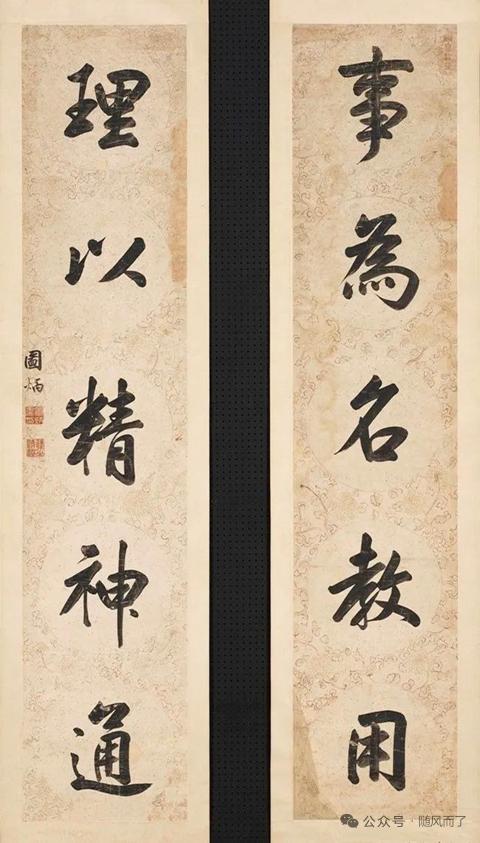 事為名教用
理以精神通
圖炳
公众号·随风而了